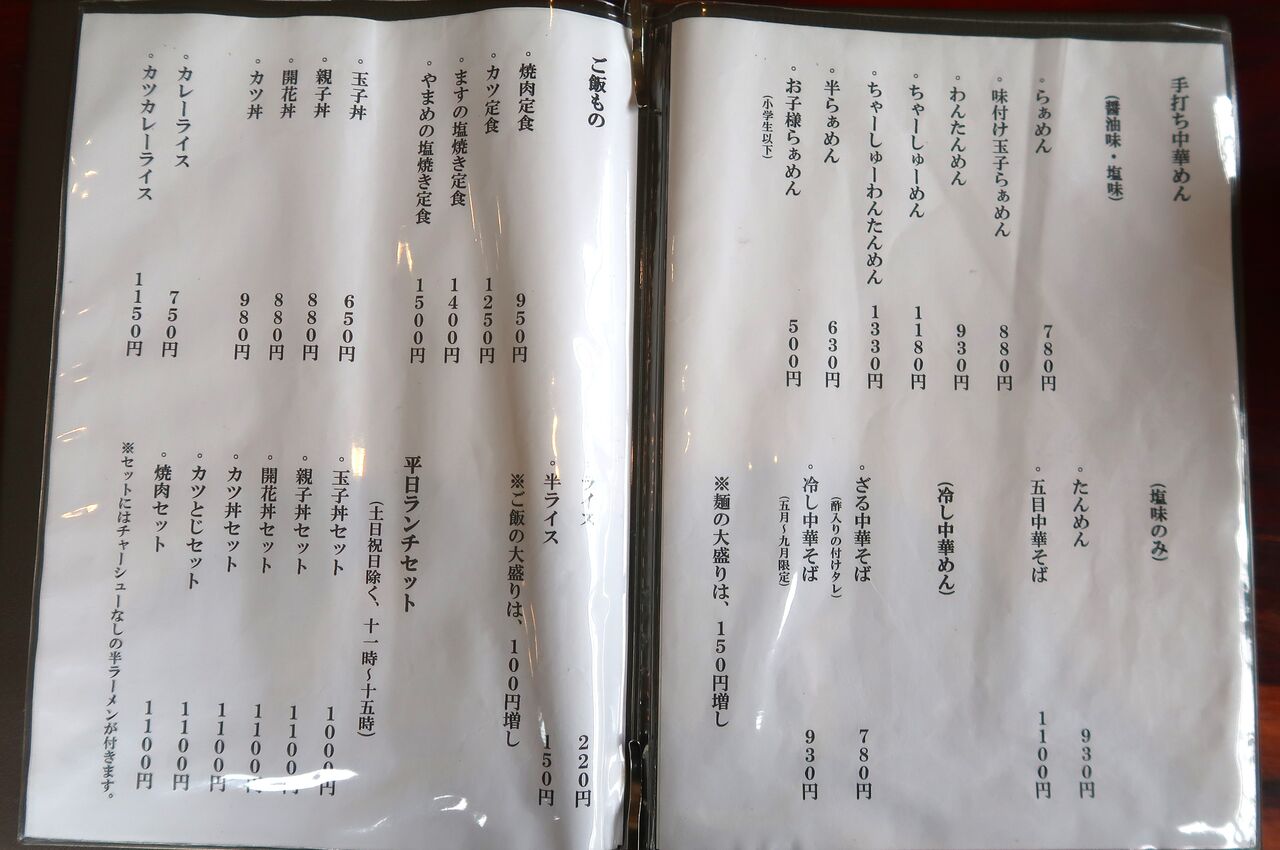 手打ち中華めん
(醤油味・塩味)
。らぁめん 780円
。味付け玉子らぁめん 880円
。わんたんめん 930円
。ちゃーしゅーめん 1180円
。ちゃーしゅーわんたんめん 1330円
。半らぁめん 630円
。お子様らぁめん 500円
(小学生以下)
(塩味のみ)
。たんめん 930円
。五目中華そば 1100円
(冷し中華めん)
。ざる中華そば 780円
(酢入りの付けタレ)
。冷し中華そば 930円
(五月〜九月限定)
※麺の大盛りは、150円増し
ご飯もの
。焼肉定食 950円
。カツ定食 1250円
。ますの塩焼き定食 1400円
。やまめの塩焼き定食 1500円
。玉子丼 650円
。親子丼 880円
。開花丼 880円
。カツ丼 980円
。カレーライス 750円
。カツカレーライス 1150円
イス 220円
。半ライス 150円
※ご飯の大盛りは、100円増し
平日ランチセット
(土日祝日除く、十一時〜十五時)
。玉子丼セット 1000円
。親子丼セット 1100円
。開花丼セット 1100円
。カツ丼セット 1100円
。カツとじセット 1100円
。焼肉セット 1100円
※セットにはチャーシューなしの半ラーメンが付きます。